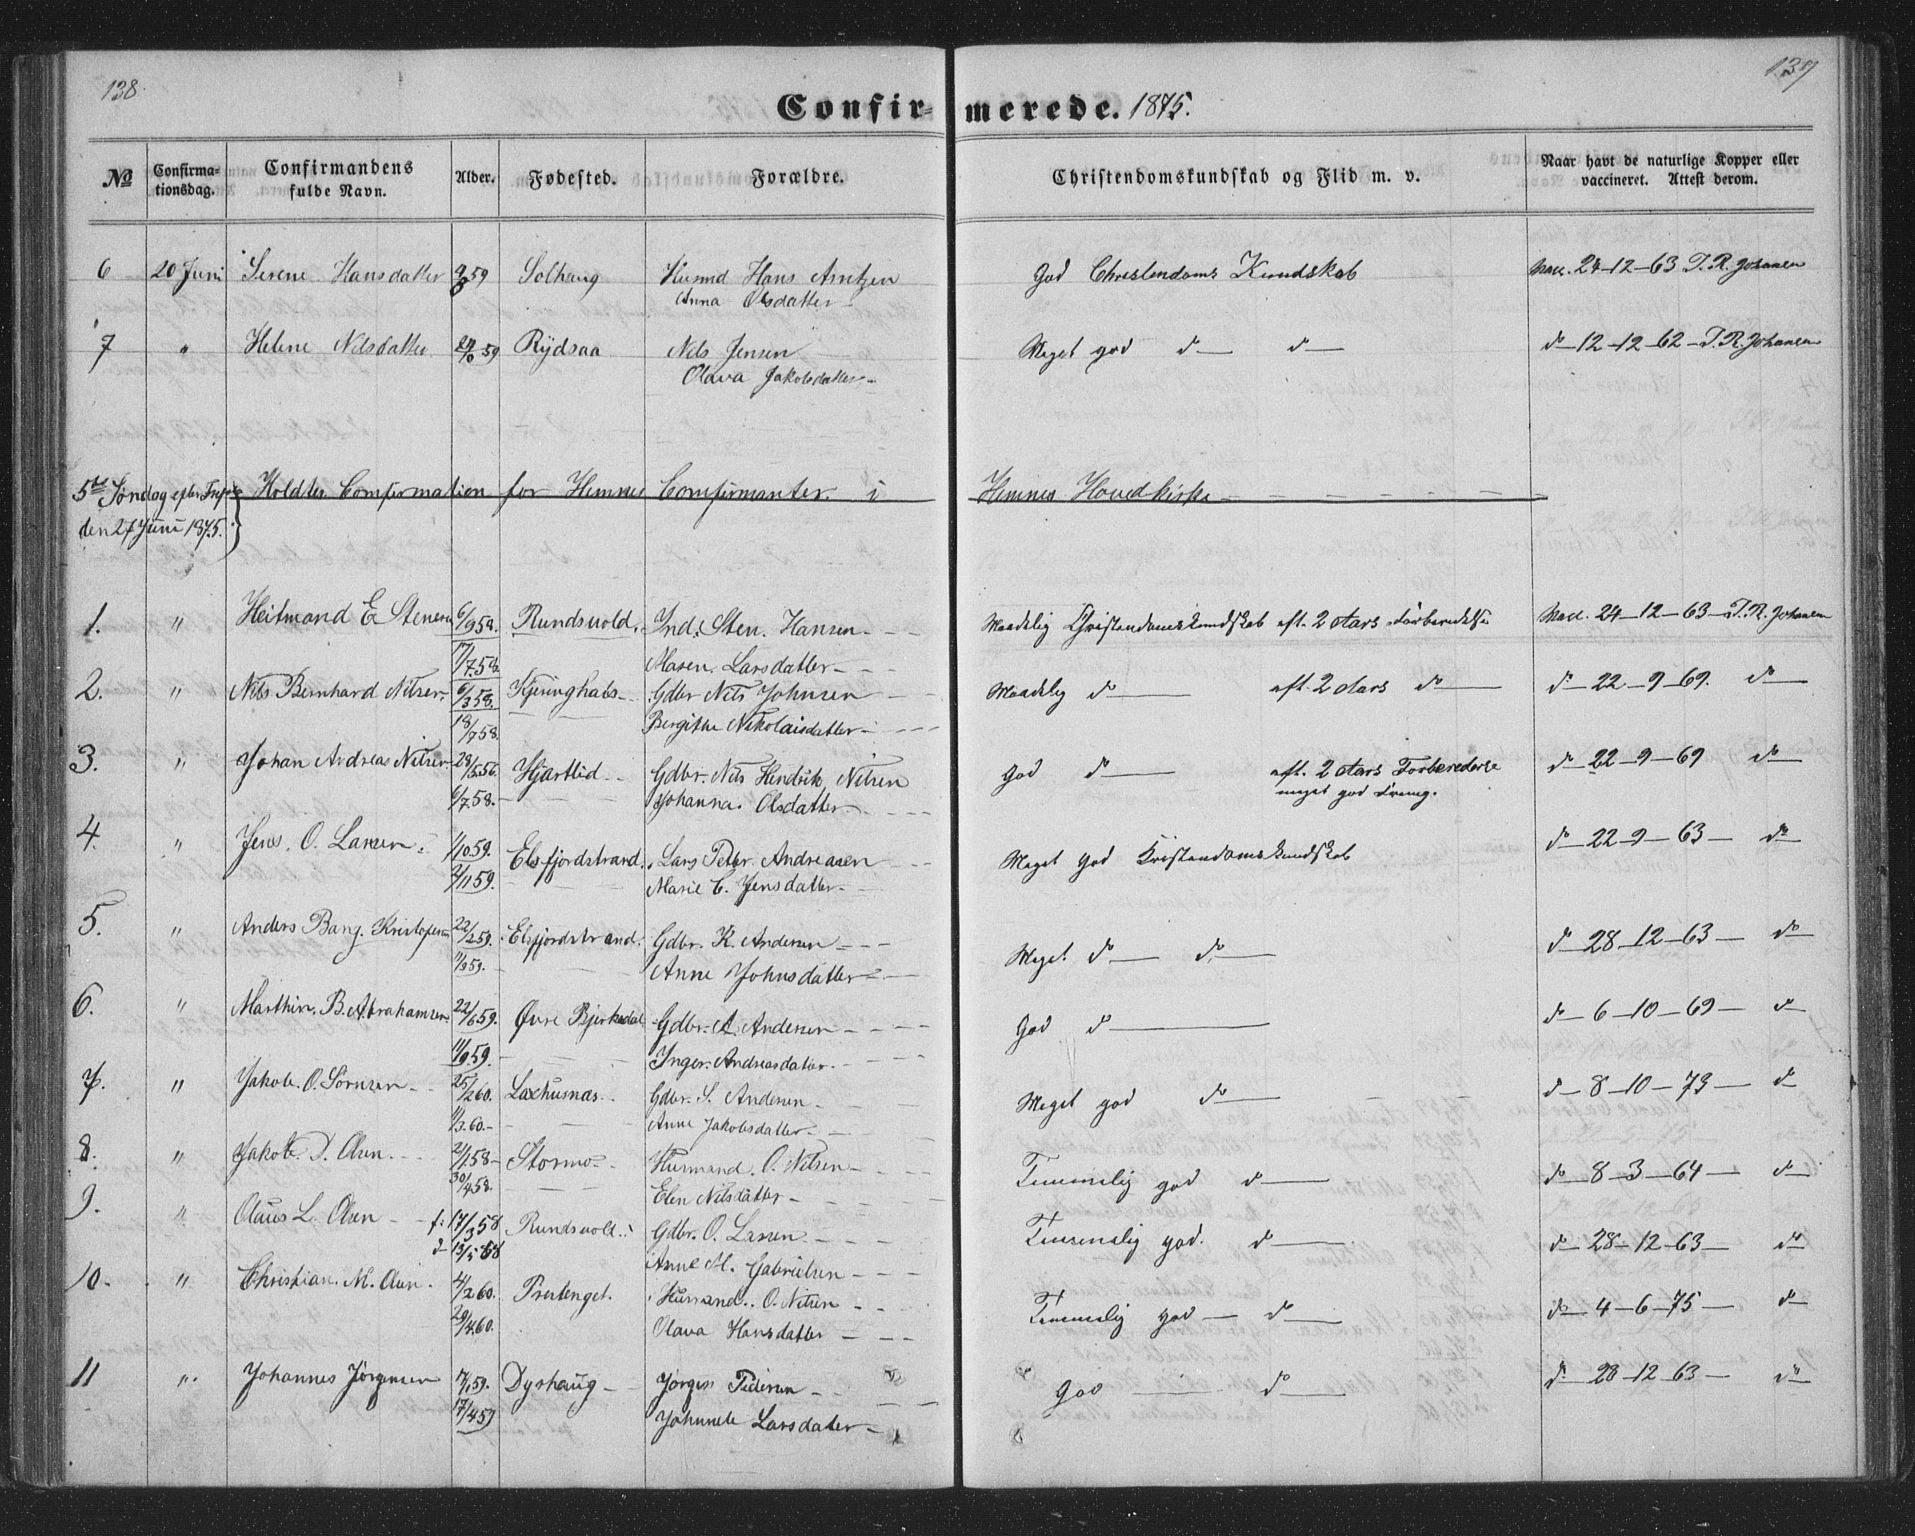 138.
139
Confirmerede. 1875.
№
Confirmationsdag.
Confirmandens fulde Navn.
Alder.
Fødested.
Forældre.
Christendomskundskab og Flid m. v.
Naar havt de naturlige Kopper eller vaccineret. Attest derom.
6 20 Juni Serene Hansdatter 59 Solhaug Husmd Hans Arntzen God Christendoms Kundskab Vacc. 24-12-63 T. R. Johansen
Anna Olsdatter
7 " Helene Nilsdatter 59 Rydsaa Nils Jensen Meget god do do do 12-12-62 T. R. Johansen
Olava Jakobsdatter
5te Søndag efter Trefol. Holdtes Comfirmation for Hemnes Comfirmanter i Hemnes Hovedkirke
den 27 Juni 1875.
1. " Heitmand E Stensen 6/9 58. Rundsvold. Ind: Sten. Hansen Maadelig Christendomskundskab eft. 2 Aars Forberedelse Vacc. 24-12-63 T. R. Johansen
17/7 58. Maren Larsdatter
2. " Nils Bernhard Nilsen 6/3 58. Kjeringhals Gdbr Nils Johnsen Maadelig do eft. 2 Aars do do 22-9-69. do
18/7 58. Bergithe Nikolaisdatter
3. " Johan Andreas Nilsen 28/5 56. Hjartlid Gdbr. Nils Hendrik Nilsen God do eft. 2 Aars Forberedelse do 22-9-69 do
6/7 58. Johanna Olsdatter meget god
4. " Jens. O. Larsen 1/10 59. Elsfjordstrand. Lars Peter Andreasen Meget god Kristendomskundskab do 22-9-63 do
2/11 59. Marie C. Jensdatter
5. " Anders Bang. Kristofersen 22/2 59. Elsfjordstrand. Gdbr. K. Andersen Meget do do do 28-12-63 do
11/9 59. Anne Johnsdatter
6. " Marthin. B. Abrahamsen 22/6 59. Øvre Bjerkadal Gdbr. A. Andersen God do do 6-10-69 do
11/9 59. Inger. Andreasdatter.
7. " Jakob. O. Sørnsen 25/2 60. Laxhusnæs Gdbr. S. Andersen Meget god do do 8-10-73 do
11/3 60. Anne Jakobsdatter
8. " Jakob. D. Olsen 21/1 58 Stormo Husmand. O. Nilsen Temmelig god do do 8-3-64 do
30/4 58. Elen Nilsdatter
9. " Olaus L. Olsen f: 17/3 58 Rundsvold. Gdbr. O. Larsen Temmelig god. do do 28-12-63 do
d 13/5 58 Anne M. Gabrielsen
10. " Christian. M. Olsen. 4/2 60. Prestenget. Husmand. O. Nilsen Temmelig god do do 4-6-75 do
29/4 60. Olava Hansdatter
11 " Johannes Jørgensen 17/1 59. Dyshaug Jørgen Pedersen God do do 28-12-63 do
17/4 59 Johnnele Larsdatter